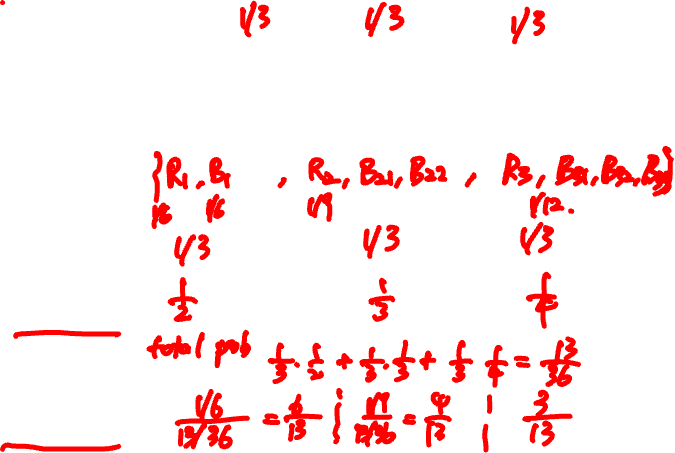 1/3 1/3 1/3
{R1, B1, R2, B21, B22, R3, B31, B32, B33}
1/6 1/6 1/9 1/12.
1/3 1/3 1/3
1/2 1/3 1/4
total prob 1/3 · 1/2 + 1/3 · 1/3 + 1/3 · 1/4 = 13/36
(1/6)/(13/36) = 6/13 | (1/9)/(13/36) = 4/12 | 3/13